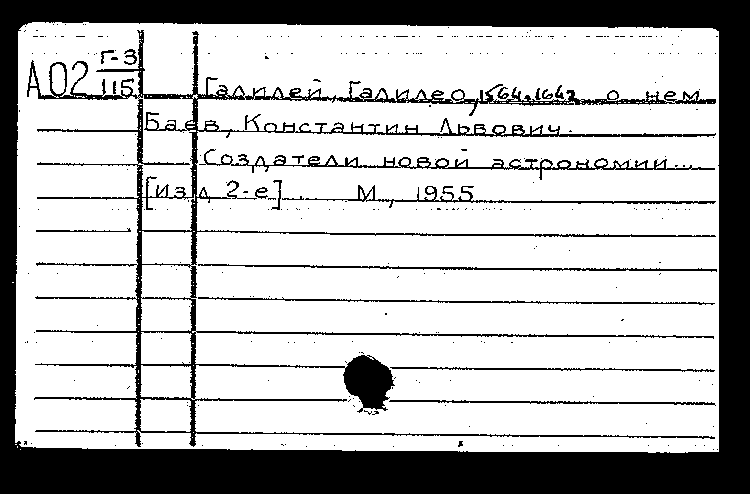 А02 Г-3
115 Галилей, Галилео, 1564-1642 о нем
Баев, Константин Львович.
Создатели новой астрономии...
[Изд 2-е]. М, 1955